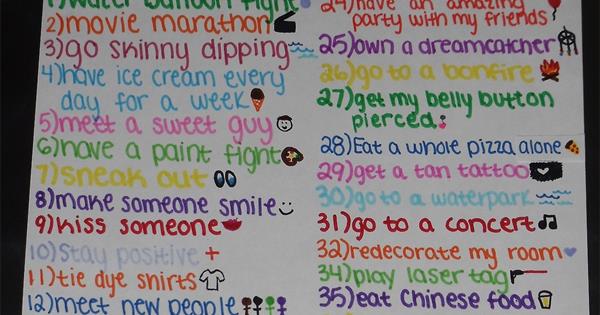 1)water balloon fight
2)movie marathon
3)go skinny dipping
4)have ice cream every
day for a week
5)meet a sweet guy
6)have a paint fight
7)sneak out
8)make someone smile
9)kiss someone
10)Stay positive +
11)tie dye shirts
12)meet new people
24)have an amazing
party with my friends
25)own a dreamcatcher
26)go to a bonfire
27)get my belly button
pierced
28)Eat a whole pizza alone
29)get a tan tattoo
30)go to a waterpark
31)go to a concert
32)redecorate my room
34)play laser tag
35)eat Chinese food